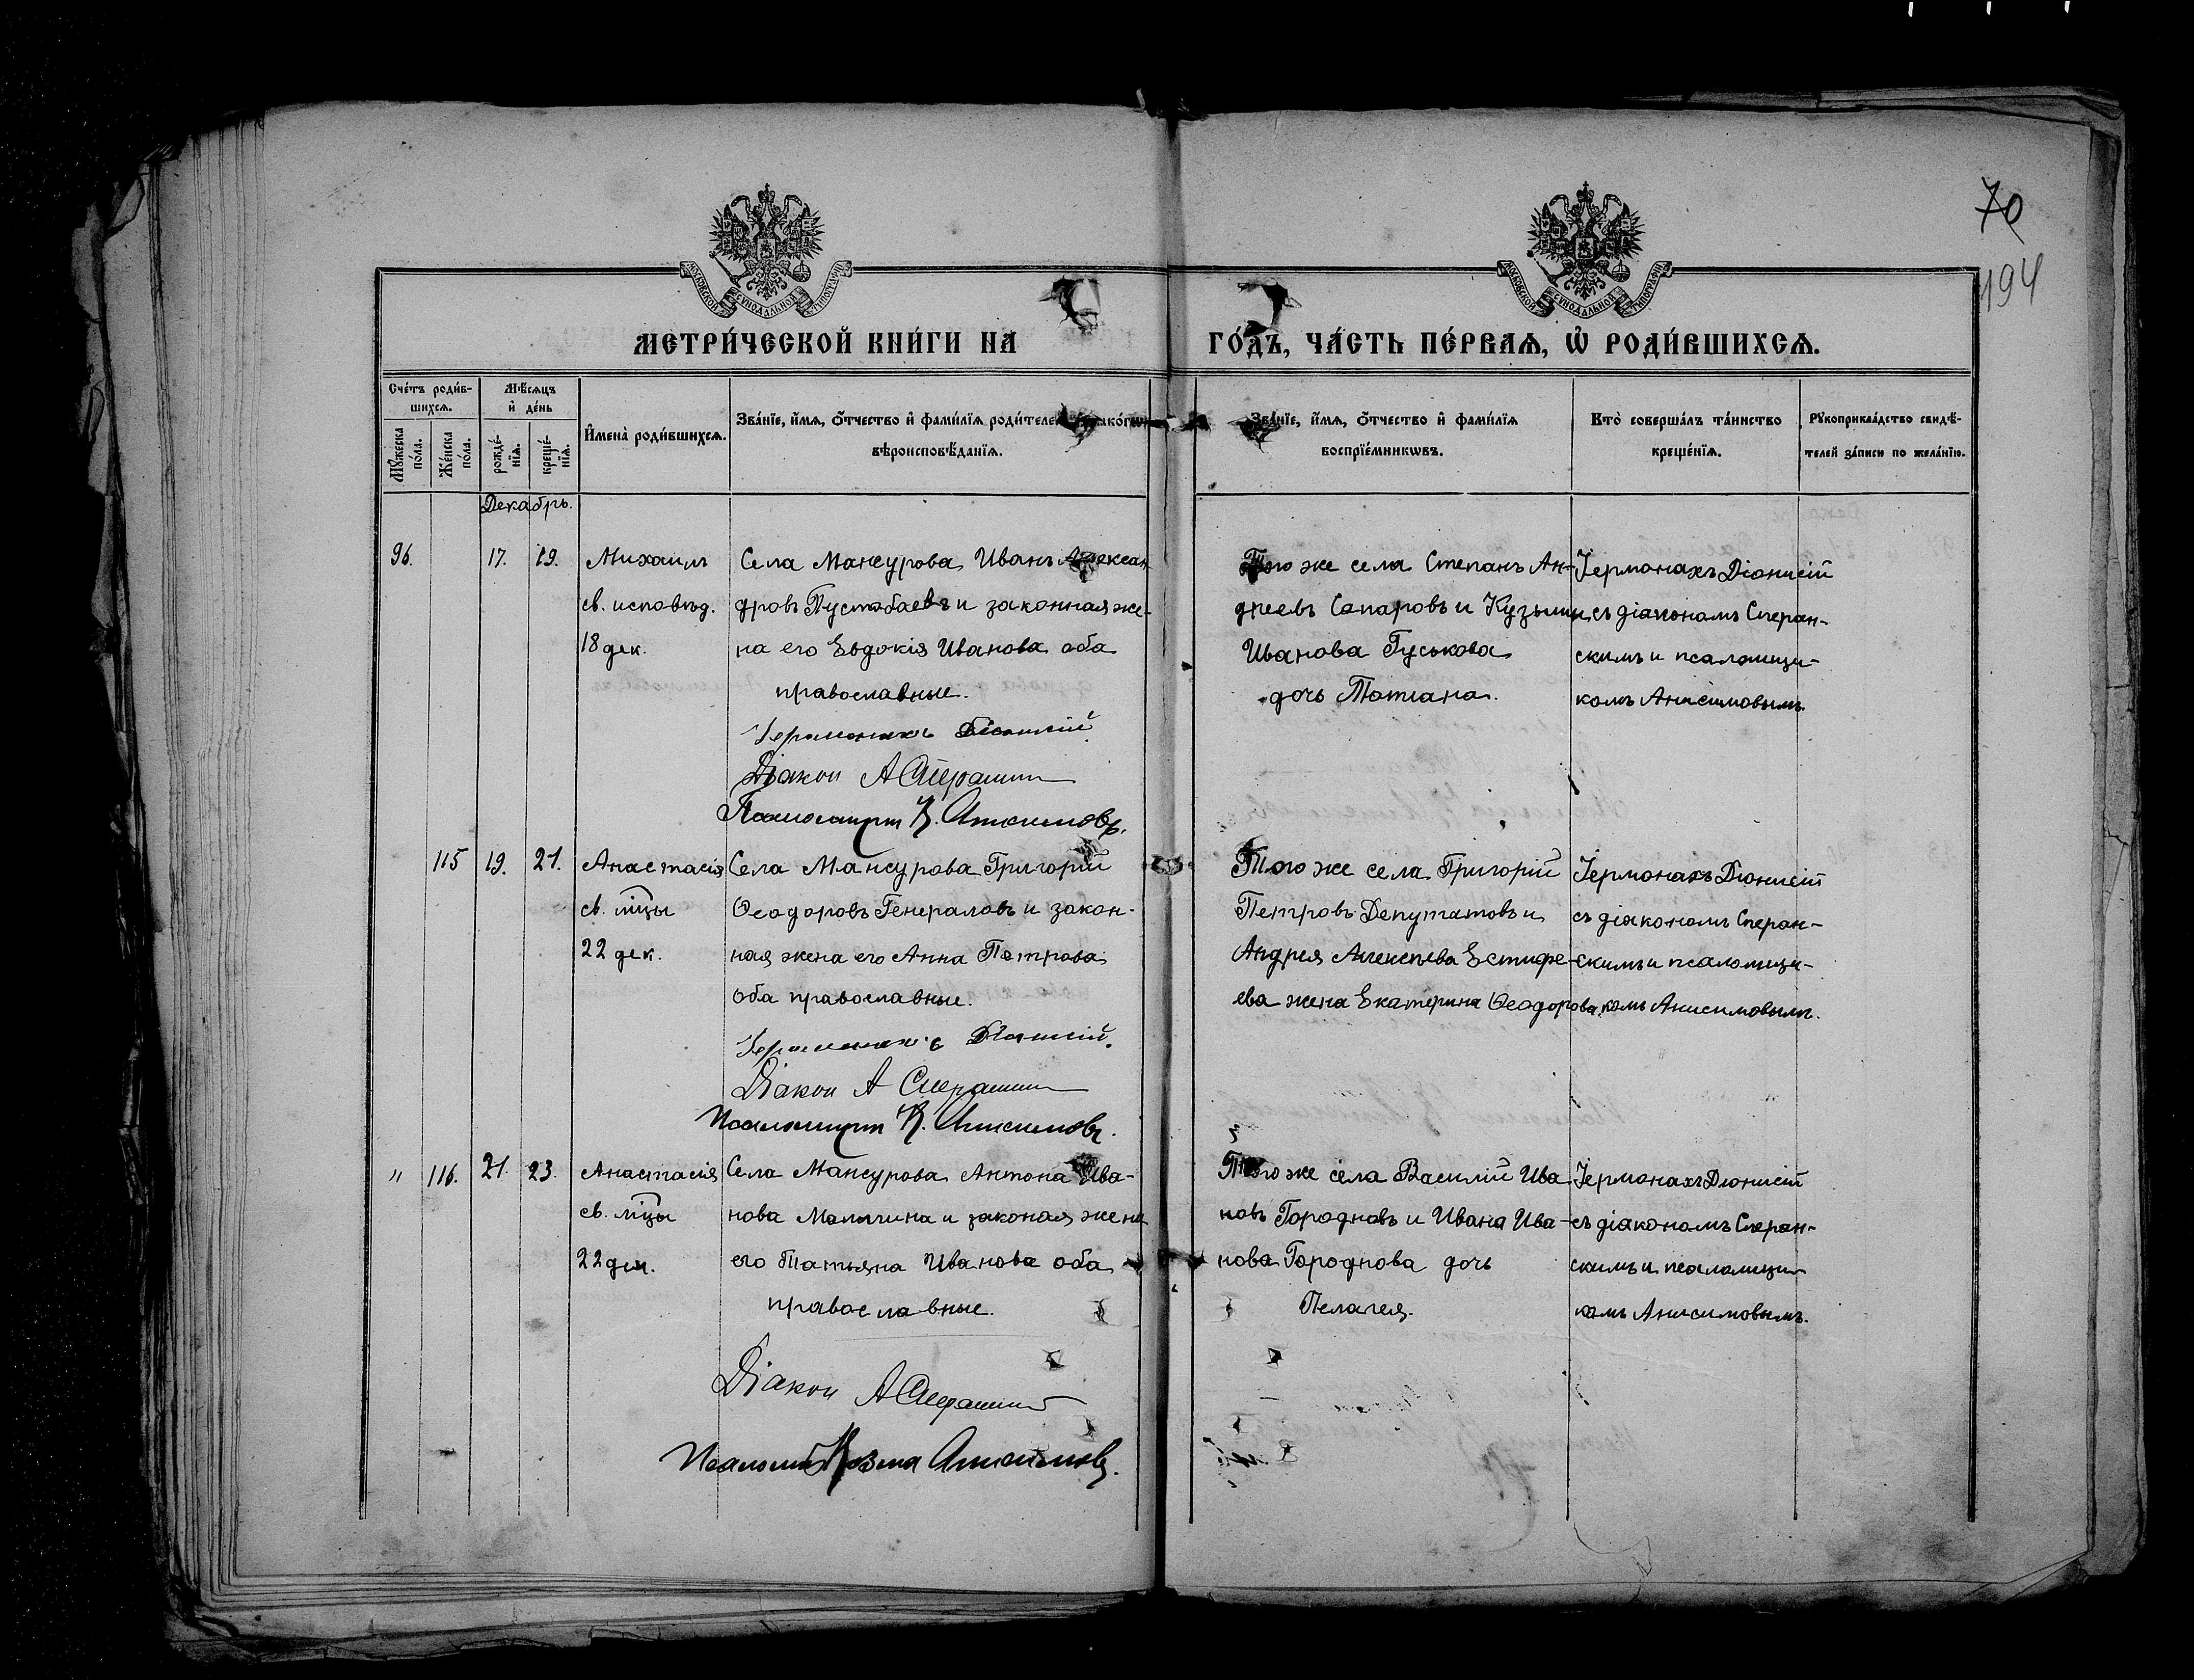 70
194
МОСКОВСКОЙ СѴНОДАЛЬНОЙ ТИПОГРАФІИ
МОСКОВСКОЙ СѴНОДАЛЬНОЙ ТИПОГРАФІИ
МЕТРИ́ЧЕСКОЙ КНИ́ГИ НА
ГО́ДЪ, ЧА́СТЬ ПЕ́РВАѦ, Ѽ РОДИ́ВШИХСѦ.
Сче́тъ роди́в-
шихсѧ.
Мꙋ́жеска по́ла.
Же́нска по́ла.
Мѣ́сѧцъ
и҆ де́нь
рожде́-
нїѧ.
креще́-
нїѧ.
И҆мена̀ роди́вшихсѧ.
Зва́нїе, и҆́мѧ, ѻ҆́тчество и҆ фами́лїѧ роди́телей,
вѣроисповѣ́данїѧ.
Зва́нїе, и҆́мѧ, ѻ҆́тчество и҆ фами́лїѧ
воспрїе́мникѡвъ.
Кто̀ соверша́лъ та́инство
креще́нїѧ.
Рꙋкоприкла́дство свидѣ́-
телей за́писи по жела́нїю.
Декабрь.
96. 17. 19. Михаилъ
св. исповѣд.
18 дек.
Села Мансурова, Иванъ Алексан
дровъ Пустобаевъ и законная же-
на его Евдокія Иванова оба
православные.
Іеромонахъ Діонисій
Діакон А Сперанскій
Псаломщик К. Анисимовъ.
Того же села Степанъ Ан-
дреевъ Сапаровъ и Кузьмы
Иванова Гуськова
дочь Татіана.
Іермонахъ Діонисій
съ діакономъ Сперан-
скимъ и псаломщи-
комъ Анисимовымъ.
115 19. 21. Анастасія
св. мцы
22 дек.
Села Мансурова Григорій
Ѳеодоровъ Генераловъ и закон-
ная жена его Анна Петрова
оба православные.
Іеромонахъ Діонисій.
Діакон А Сперанскій
Псаломщик К. Анисимовъ.
Того же села Григорій
Петровъ Депутатовъ и
Андрея Алексѣева Естифе-
ева жена Екатерина Ѳеодорова.
Іермонахъ Діонисій
съ діакономъ Сперан-
скимъ и псаломщи-
комъ Анисимовымъ.
" 116. 21. 23. Анастасія
св. мцы
22 дек.
Села Мансурова Антона Ива-
нова Малычина и законая жена
его Татьяна Иванова оба
православные.
Діакон А Сперанскій
Псаломщ Козма Анисимовъ.
Того же села Василій Ива
новъ Городновъ и Ивана Ива-
нова Городнова дочь
Пелагея.
Іермонахъ Діонисій
съ діакономъ Сперан-
скимъ и псаломщи-
комъ Анисимовымъ.